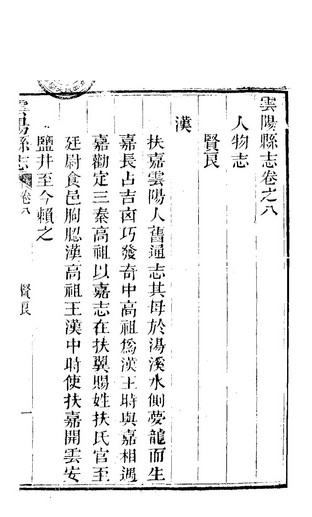 雲陽縣志卷之八
人物志
賢良
漢
扶嘉雲陽人舊通志其母於湯溪水側夢龍而生
嘉長占吉凶巧發奇中高祖爲漢王時與嘉相遇
嘉勸定三秦高祖以嘉志在扶翼賜姓扶氏官至
廷尉食邑朐䏰漢高祖王漢中時使扶嘉開雲安
鹽井至今賴之
雲陽縣志
卷八
賢良
一